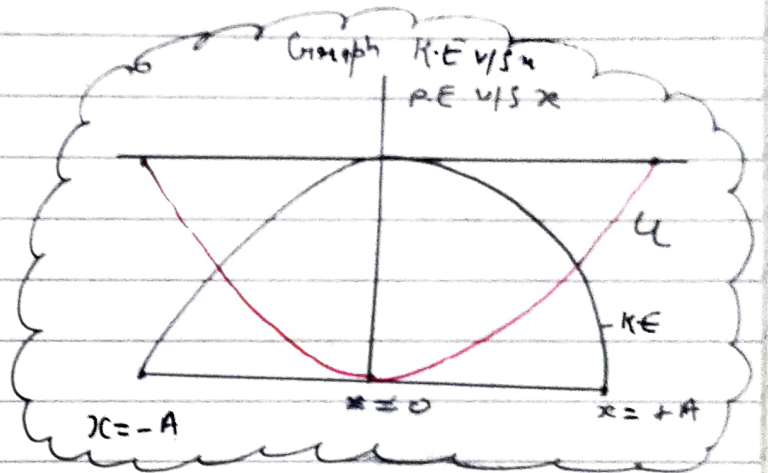 Graph K.E v/s x
P.E v/s x
U
KE
x = 0
x = -A
x = +A